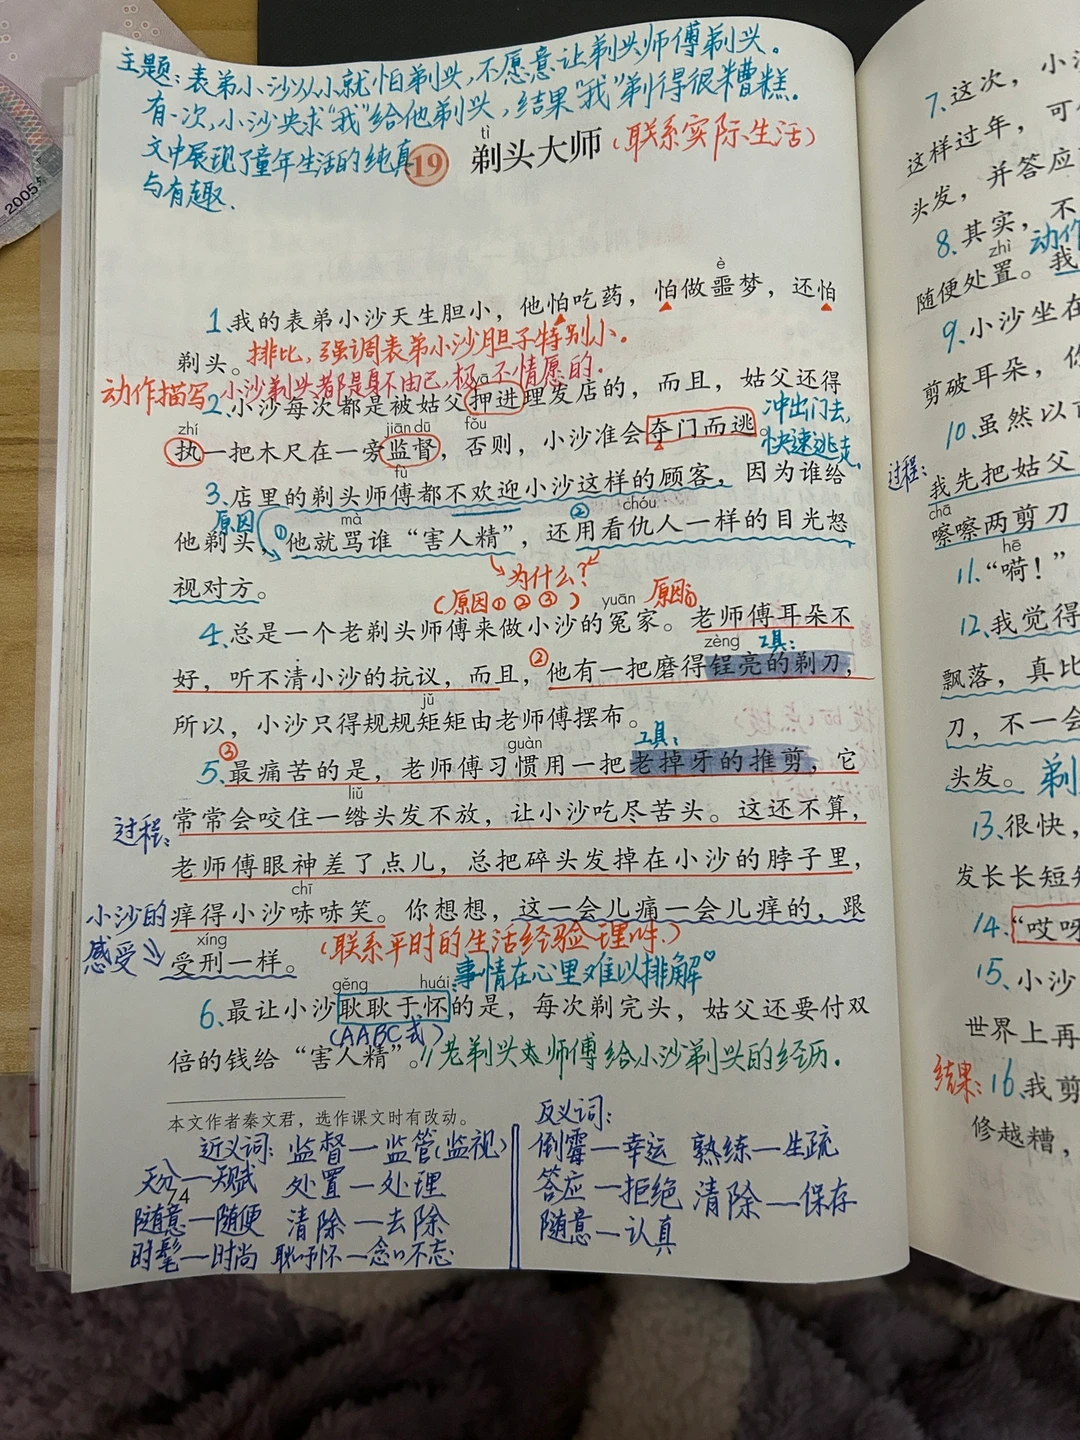 主题:表弟小沙从小就怕剃头,不愿意让剃头师傅剃头。
有一次,小沙央求“我”给他剃头,结果“我”剃得很糟糕。
文中展现了童年生活的纯真
与有趣.
2005
tì
19 剃头大师(联系实际生活)
è
1、我的表弟小沙天生胆小,他怕吃药,怕做噩梦,还怕
剃头。排比,强调表弟小沙胆子特别小。
动作描写,小沙剃头都是身不由己,极不情愿的.
yā
2、小沙每次都是被姑父押进理发店的,而且,姑父还得
冲出门去,
快速逃走.
zhí jiān dū fǒu
执一把木尺在一旁监督,否则,小沙准会夺门而逃。
fù
3、店里的剃头师傅都不欢迎小沙这样的顾客,因为谁给
原因 ① mà ② chóu
他剃头,他就骂谁“害人精”,还用看仇人一样的目光怒
视对方。
为什么?
(原因①②③)
yuān 原因①
4、总是一个老剃头师傅来做小沙的冤家。老师傅耳朵不
zèng 工具:
好,听不清小沙的抗议,而且,②他有一把磨得锃亮的剃刀,
jǔ
所以,小沙只得规规矩矩由老师傅摆布。
③ guàn 工具:
5、最痛苦的是,老师傅习惯用一把老掉牙的推剪,它
liǔ
过程:
常常会咬住一绺头发不放,让小沙吃尽苦头。这还不算,
老师傅眼神差了点儿,总把碎头发掉在小沙的脖子里,
chī
小沙的
感受
痒得小沙哧哧笑。你想想,这一会儿痛一会儿痒的,跟
xíng
受刑一样。
(联系平时的生活经验理解.)
事情在心里难以排解
gěng huái
6、最让小沙耿耿于怀的是,每次剃完头,姑父还要付双
(AABC式)
倍的钱给“害人精”。//老剃头师傅给小沙剃头的经历.
本文作者秦文君,选作课文时有改动。
近义词: 监督—监管(监视)
天分—天赋 处置—处理
74
随意—随便 清除—去除
时髦—时尚 耿耿于怀—念念不忘
反义词:
倒霉—幸运 熟练—生疏
答应—拒绝 清除—保存
随意—认真
7、这次,小沙
这样过年,可
头发,并答应
8、其实,不
zhì 动作
随便处置。我
9、小沙坐在
剪破耳朵,你
10、虽然以
过程:
我先把姑父
chā
嚓嚓两剪刀
hē
11、“嗬!”
12、我觉得
飘落,真比
刀,不一会
头发。 剃
13、很快,
发长长短短
14、“哎呀
15、小沙
世界上再
结果:16、我剪
修越糟,